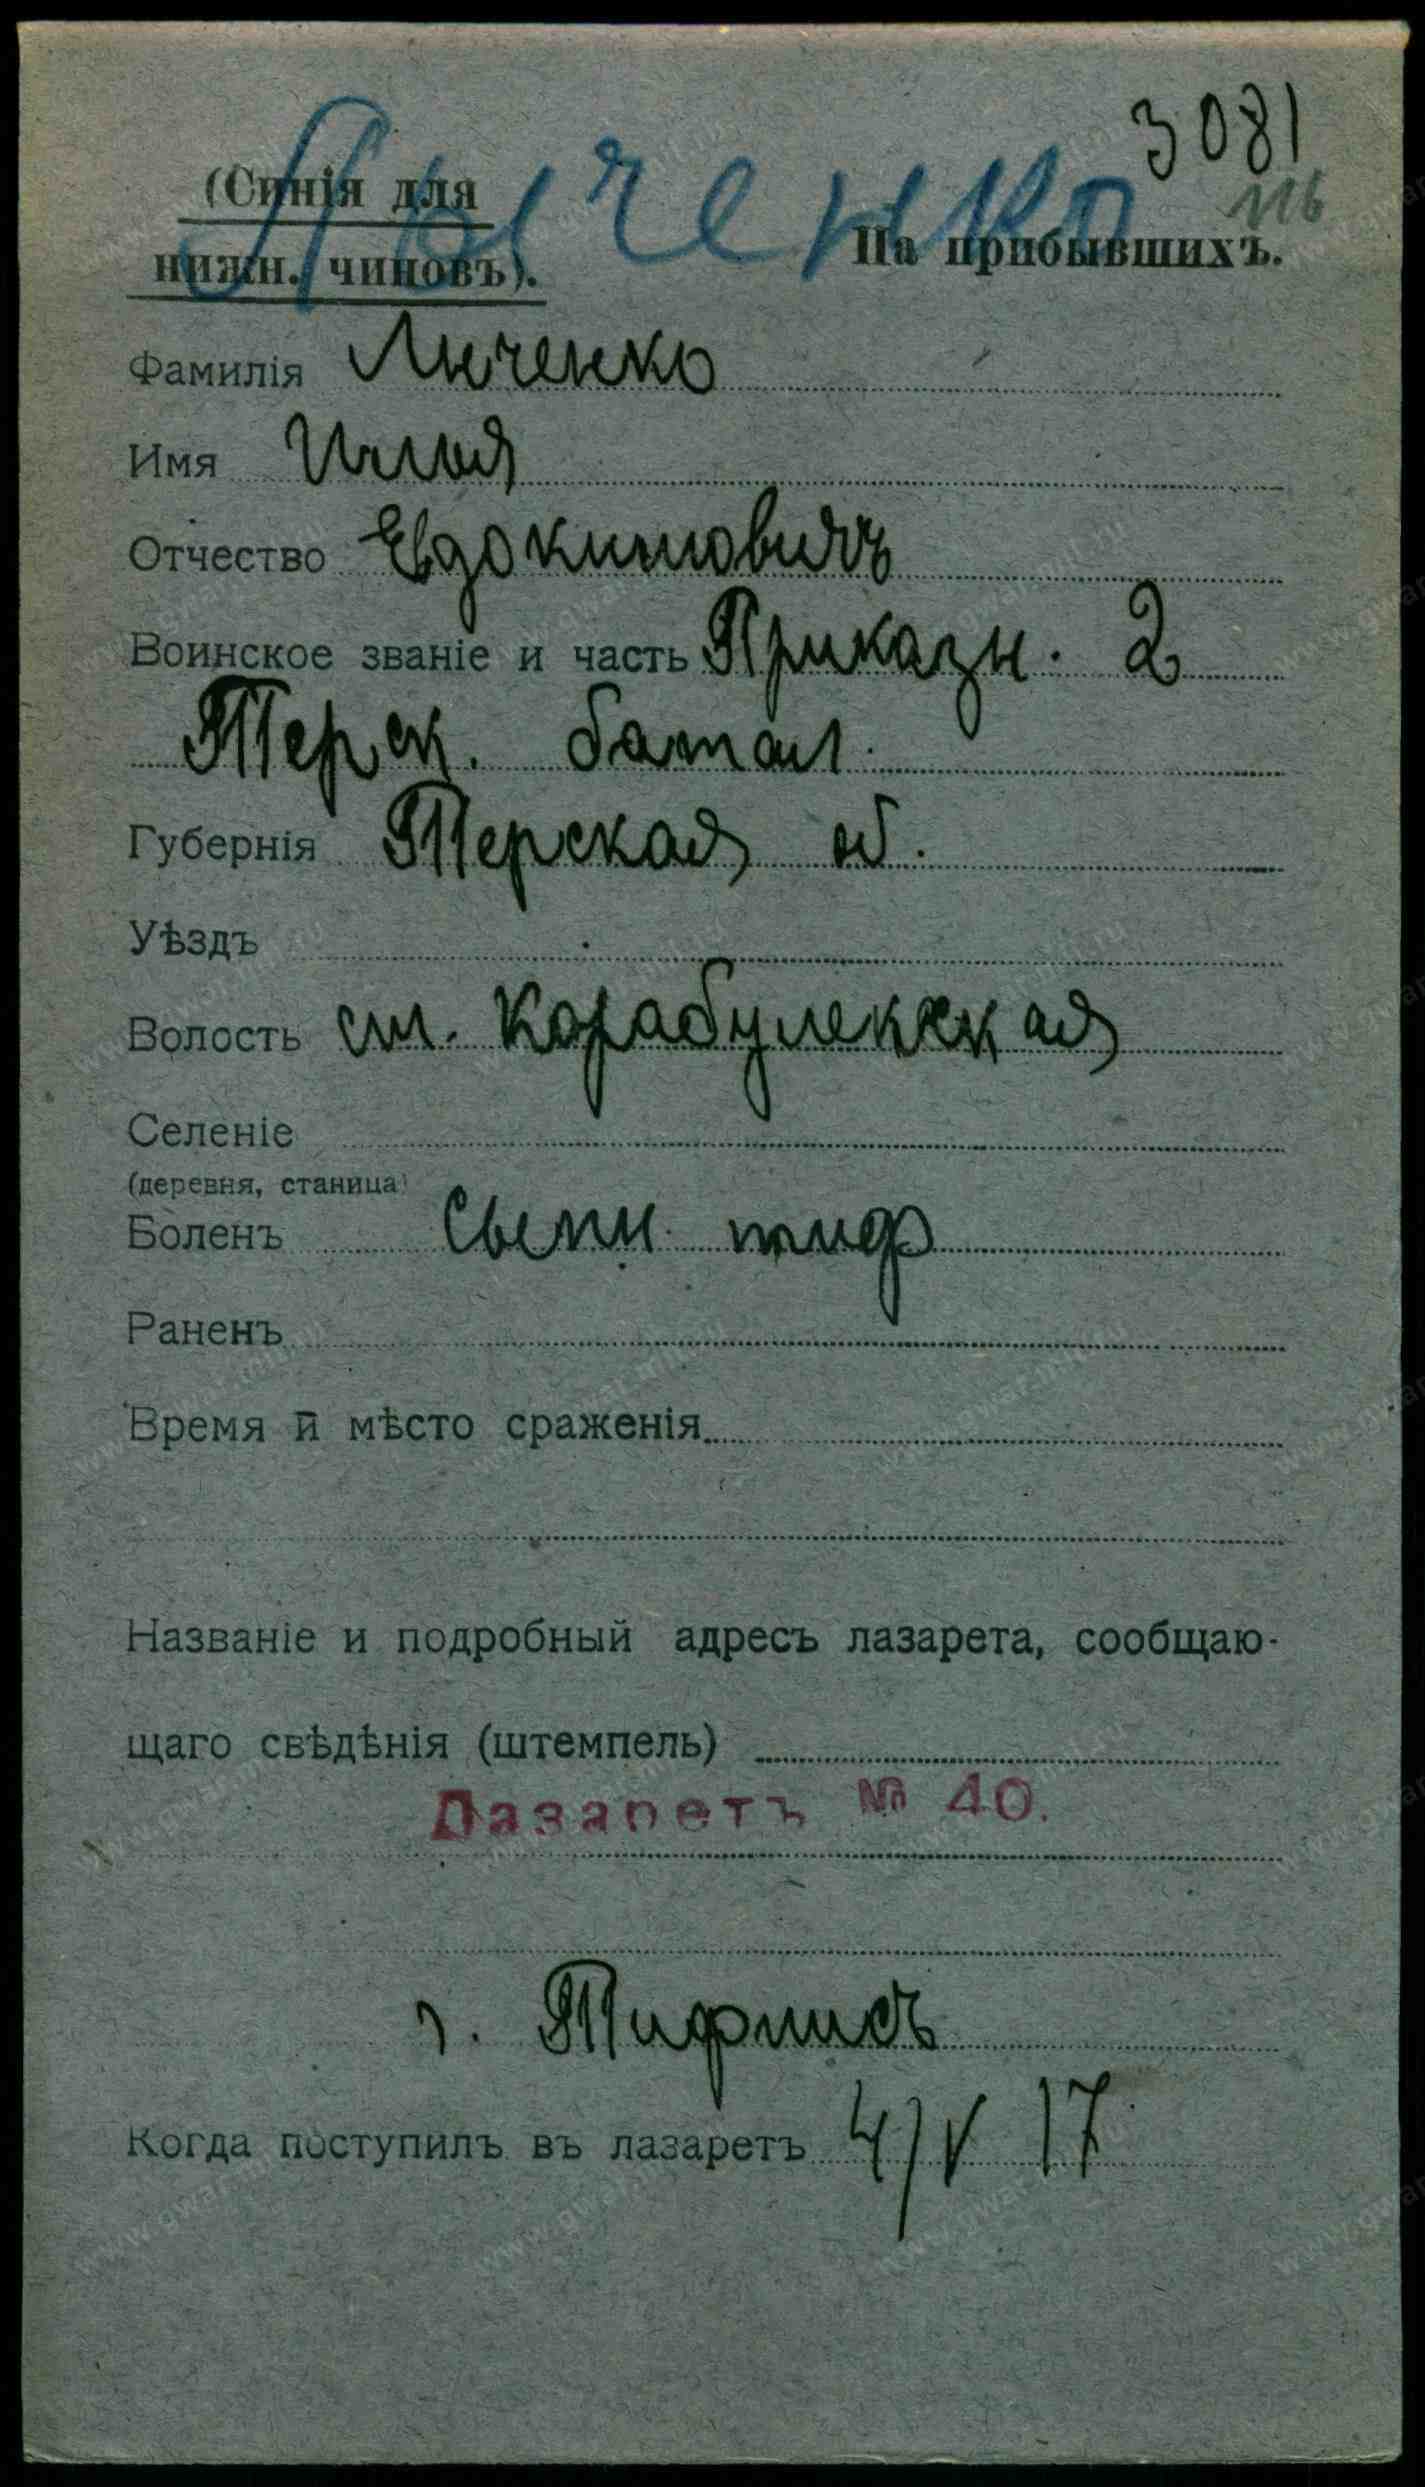 3081
116
Лыченко
(Синія для
нижн. чиновъ).
На прибывшихъ.
Фамилія Лыченко
Имя Илья
Отчество Евдокимовичъ
Воинское званіе и часть Приказн. 2
Терск. батал.
Губернія Терская об.
Уѣздъ
Волость ст. Карабулекская
Селеніе
(деревня, станица)
Боленъ Сыпн. тиф
Раненъ
Время и мѣсто сраженія
Названіе и подробный адресъ лазарета, сообщаю-
щаго свѣдѣнія (штемпель)
Лазаретъ № 40.
г. Тифлисъ
Когда поступилъ въ лазаретъ 4/V 17